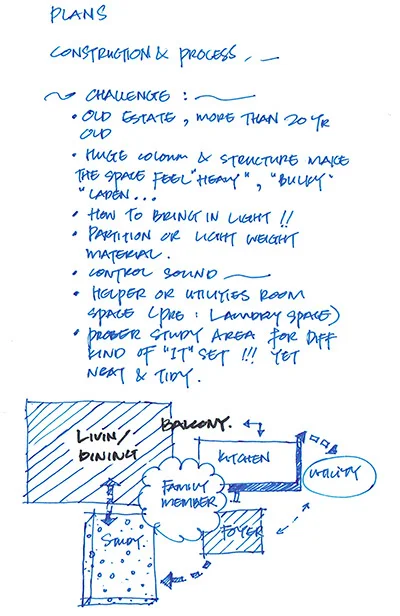 PLANS
CONSTRUCTION & PROCESS, _ _
CHALLENGE :
• OLD ESTATE, MORE THAN 20 YR
OLD
• HUGE COLUMN & STRUCTURE MAKE
THE SPACE FEEL "HEAVY", "BULKY"
"LADEN...
• HOW TO BRING IN LIGHT !!
• PARTITION OR LIGHT WEIGHT
MATERIAL.
• CONTROL SOUND
• HELPER OR UTILITIES ROOM
SPACE (PRE : LAUNDRY SPACE)
• PROPER STUDY AREA FOR DIFF
KIND OF "IT" SET !!! YET
NEAT & TIDY.
BALCONY.
LIVIN/
DINING
KITCHEN
UTILITY
FAMILY
MEMBER
FOYER
STUDY